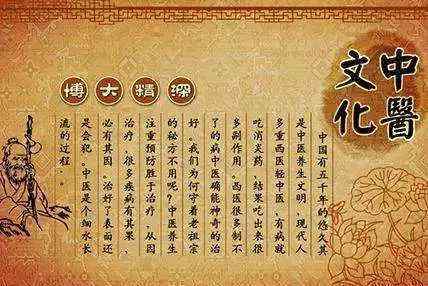 中醫
文化
博大精深
中国有五千年的悠久其
是中医养生文明，现代人
多重西医轻中医，有病就
吃消炎药，结果吃出来很
多副作用。西医很多制不
了的病中医确能神奇的治
好。我们为何守着老祖宗
的秘方不用呢？中医养生
注重预防胜于治疗，从因
治疗，很多疾病有其果，
必有其因。治好了表面还
是会犯。中医是个细水长
流的过程。